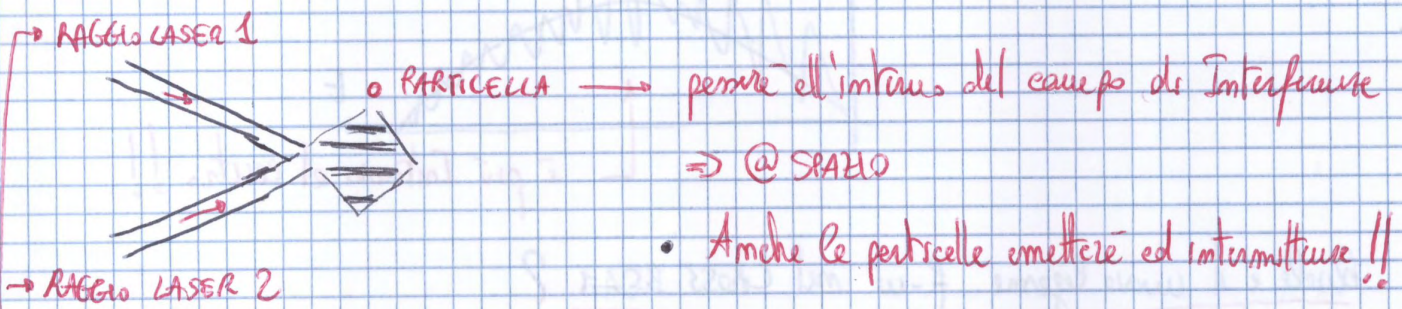 → RAGGIO LASER 1
PARTICELLA → passerà all'interno del campo di Interferenze
⇒ @ SPAZIO
• Anche le particelle emetterà ad intermittenze !!
→ RAGGIO LASER 2